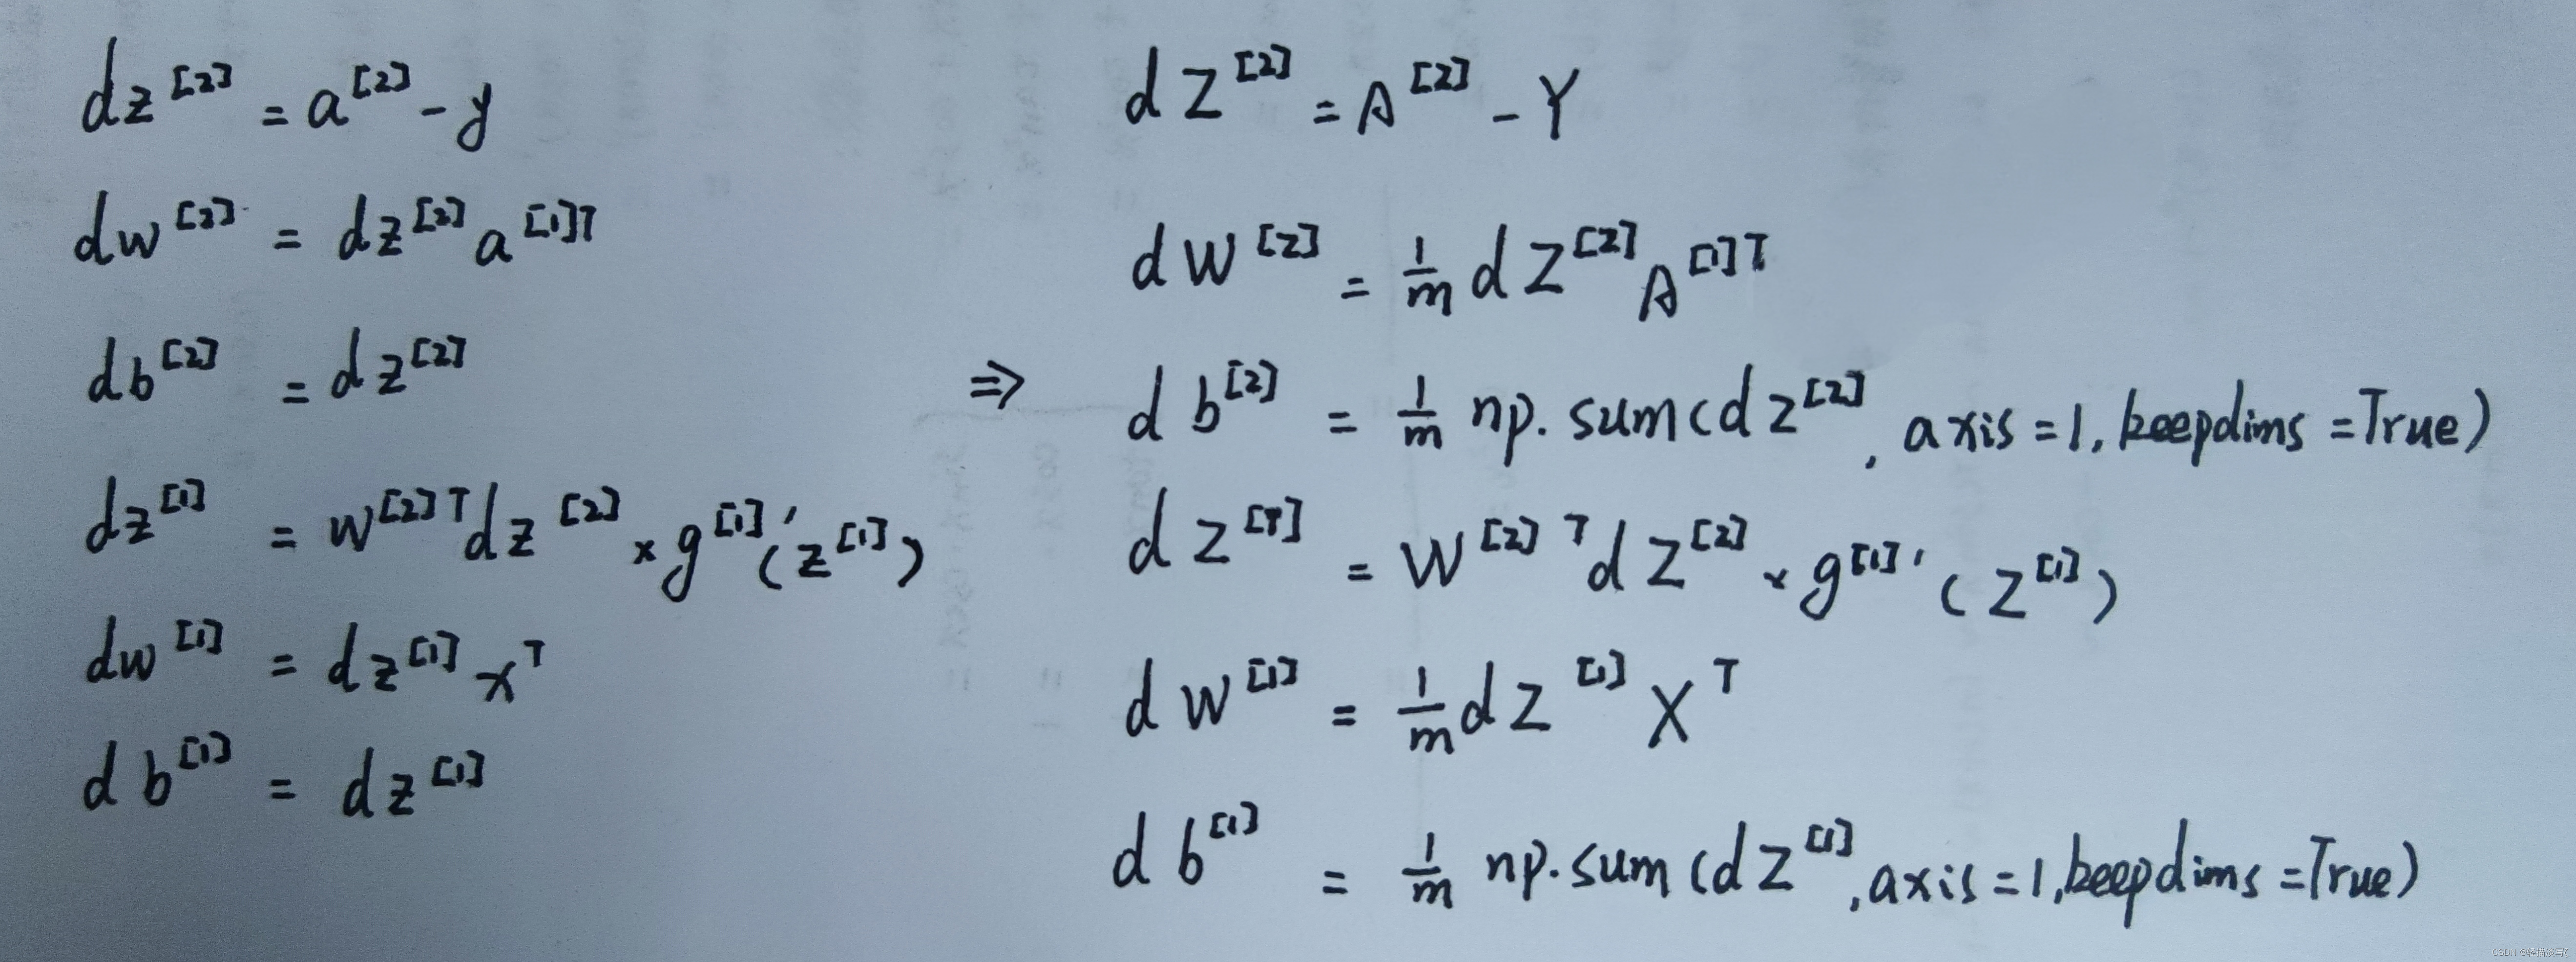 dz^[2] = a^[2] - y
dw^[2] = dz^[2] a^[1]T
db^[2] = dz^[2]
dz^[1] = w^[2]T dz^[2] × g^[1]'(z^[1])
dw^[1] = dz^[1] x^T
db^[1] = dz^[1]
⇒
dZ^[2] = A^[2] - Y
dW^[2] = 1/m dZ^[2] A^[1]T
db^[2] = 1/m np.sum(dz^[2], axis=1, keepdims=True)
dz^[1] = W^[2]T dZ^[2] × g^[1]'(Z^[1])
dW^[1] = 1/m dZ^[1] X^T
db^[1] = 1/m np.sum(dZ^[1], axis=1, keepdims=True)